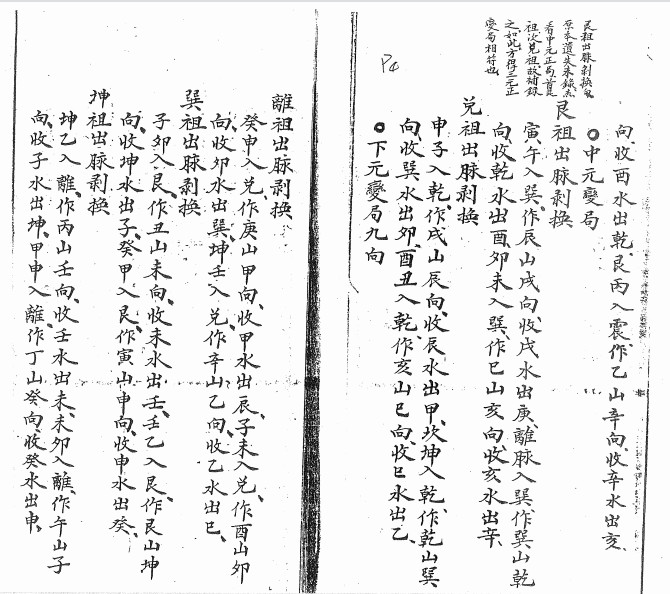 艮祖出脉剥換
原本遺失未錄
看中元正局首艮
祖次兌祖故補錄
之如此方得三元正
變局相符也
P4
向、收酉水出乾、艮丙入震、作乙山辛向、收辛水出亥、
○中元變局
艮祖出脉剥換
寅午入巽、作辰山戌向、收戌水出庚、離脉入巽、作巽山乾
向、收乾水出酉、卯未入巽、作巳山亥向、收亥水出辛、
兌祖出脉剥換
申子入乾、作戌山辰向、收辰水出甲、坎坤入乾、作乾山巽
向、收巽水出卯、酉丑入乾、作亥山巳向、收巳水出乙、
○下元變局九向
離祖出脉剥換
癸申入兌、作庚山甲向、收甲水出辰、子未入兌、作酉山卯
向、收卯水出巽、坤壬入兌、作辛山乙向、收乙水出巳、
巽祖出脉剥換
子卯入艮、作丑山未向、收未水出壬、壬乙入艮、作艮山坤
向、收坤水出子、癸甲入艮、作寅山申向、收申水出癸、
坤祖出脉剥換
坤乙入離、作丙山壬向、收壬水出未、未卯入離、作午山子
向、收子水出坤、甲申入離、作丁山癸向、收癸水出申、